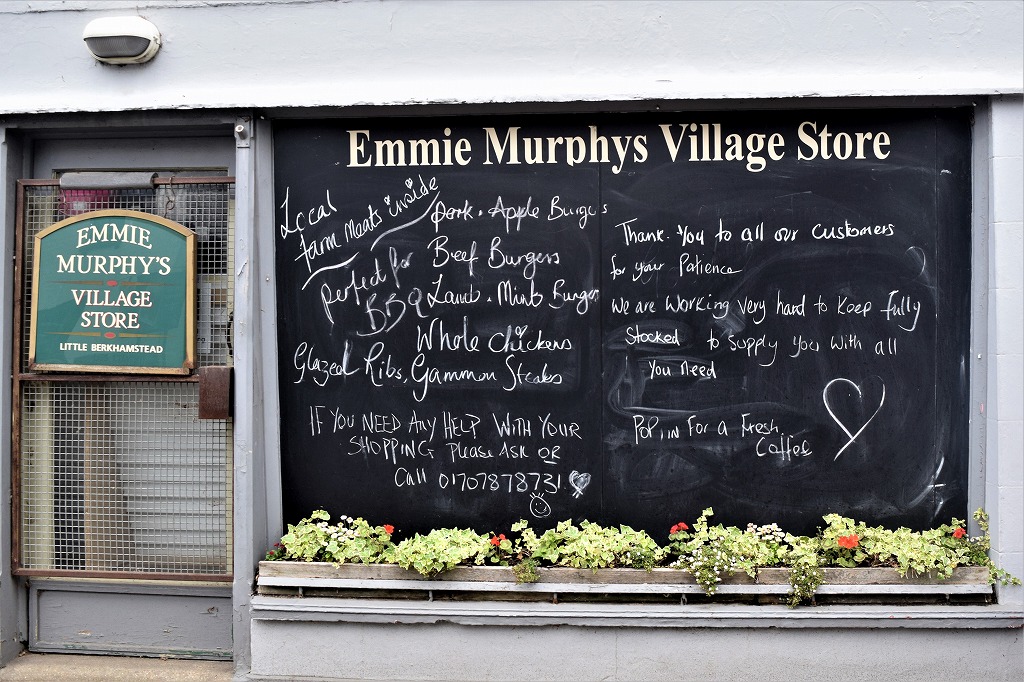 Emmie Murphys Village Store
EMMIE
MURPHY'S
VILLAGE
STORE
LITTLE BERKHAMSTEAD
Local
farm meats inside
perfect for
BBQ
Pork. Apple Burgers
Beef Burgers
Lamb. Mint Burger
Whole Chickens
Glazed Ribs, Gammon Steaks
IF YOU NEED ANY HELP WITH YOUR
SHOPPING Please ASK OR
Call 01707878731
Thank. You to all our customers
for your Patience
We are working very hard to keep fully
Stocked to supply you with all
You need
POP IN For a Fresh
Coffee